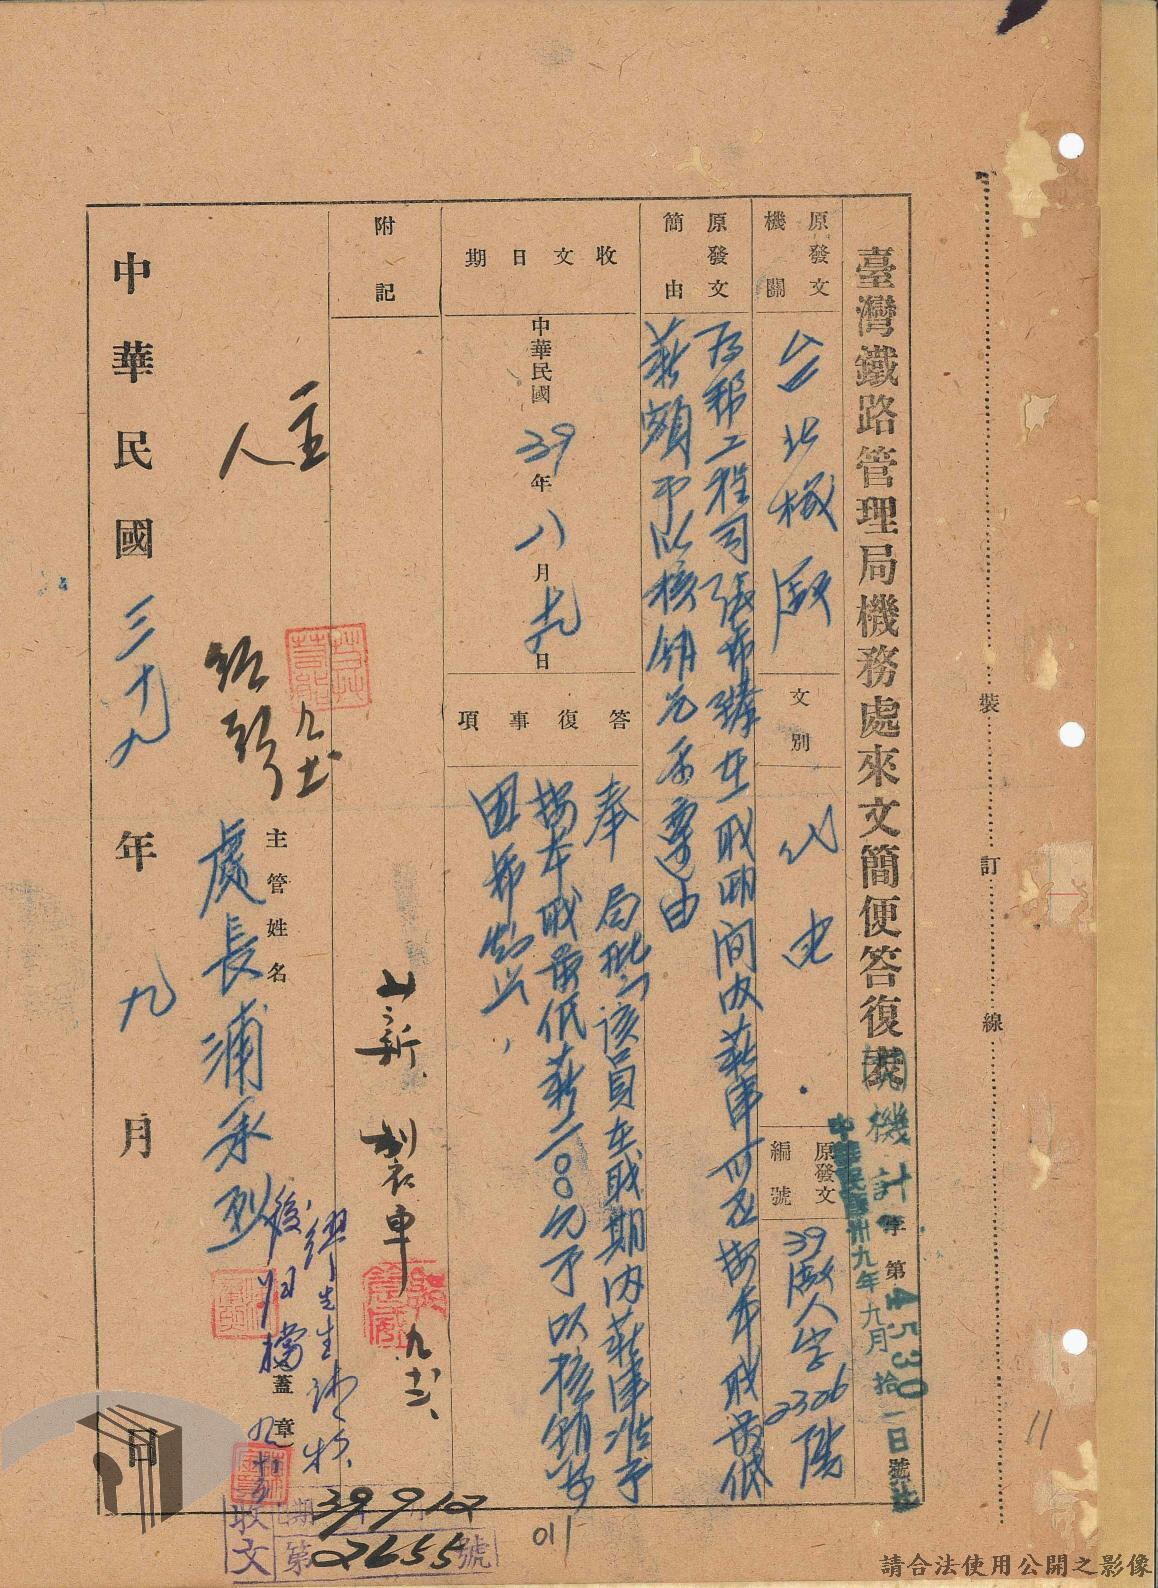 臺灣鐵路管理局機務處來文簡便答復表
機計字第4530號
中華民國卅九年九月拾一日
原發文機關
台北機廠
文別
代電
原發文編號
39廠人字2306號
原發文簡由
為幫工程司張希臻在職期間內薪津可否按本職最低
薪額予以核銷乞示遵由
收文日期
中華民國39年八月十九日
答復事項
奉 局批「該員在職期內薪津准予
按本職最低薪二〇〇元予以核銷」等
因希知照
附記
主任
九十二
主管姓名
處長浦承烈
(蓋章)
後歸檔
中華民國三十九年九月 日
收文
日期39年9月12
第2655號
裝訂線
11
011
請合法使用公開之影像